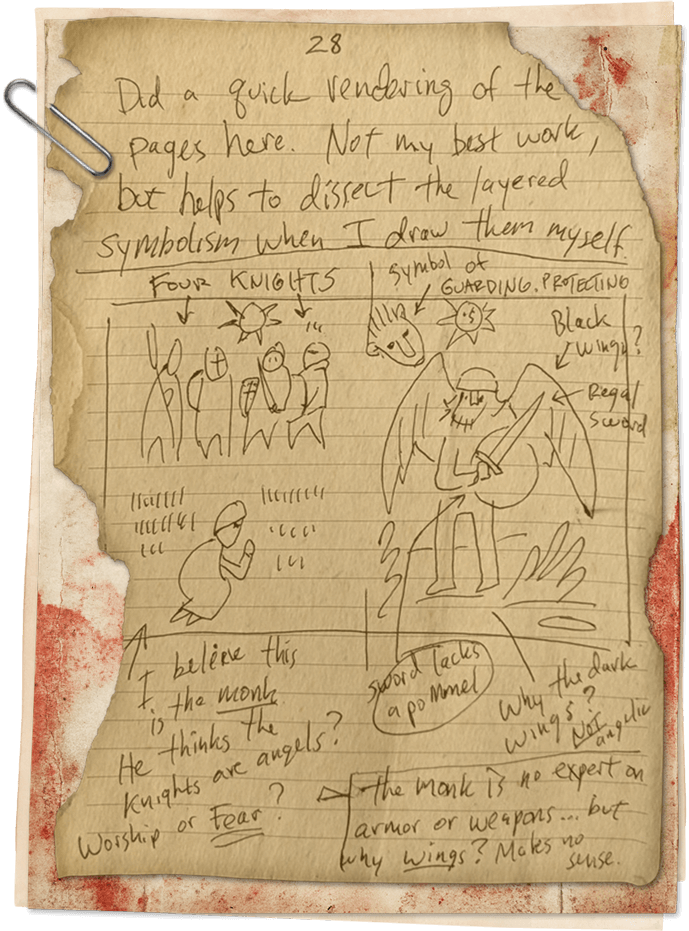 28
Did a quick rendering of the
pages here. Not my best work,
but helps to dissect the layered
symbolism when I draw them myself.
FOUR KNIGHTS
Symbol of
GUARDING, PROTECTING
Black
wings?
Regal
sword
I believe this
is the monk
He thinks the
Knights are angels?
Worship or Fear?
sword lacks
a pommel
Why the dark
wings?
Not
angelic
the monk is no expert on
armor or weapons... but
why wings? Makes no
sense.